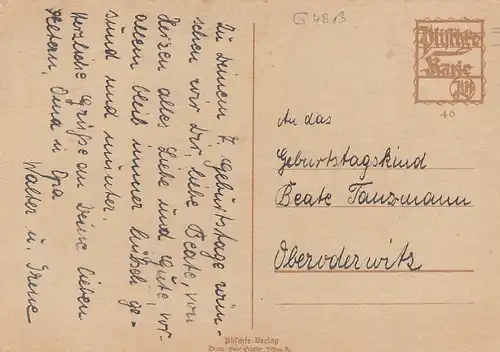 Zu Deinem 7. Geburtstage wün-
schen wir Dir, liebe Beate, von
Herzen alles Liebe und Gute, vor
allem bleib immer hübsch ge-
sund und munter.
Herzliche Grüße an Deine lieben
Eltern, Oma u. Opa
Walter u. Irene
G 48B
Plischke
Karte
46
An das
Geburtstagskind
Beate Tanzmann
Oberoderwitz
Plischke-Verlag